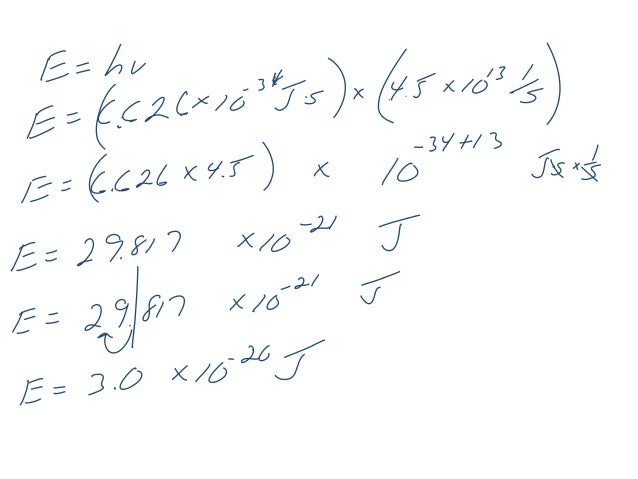 E = hν
E = (6.626 × 10⁻³⁴ J·s) × (4.5 × 10¹³ 1/s)
E = (6.626 × 4.5) × 10⁻³⁴⁺¹³ Js × 1/s
E = 29.817 × 10⁻²¹ J
E = 29.817 × 10⁻²¹ J
E = 3.0 × 10⁻²⁰ J